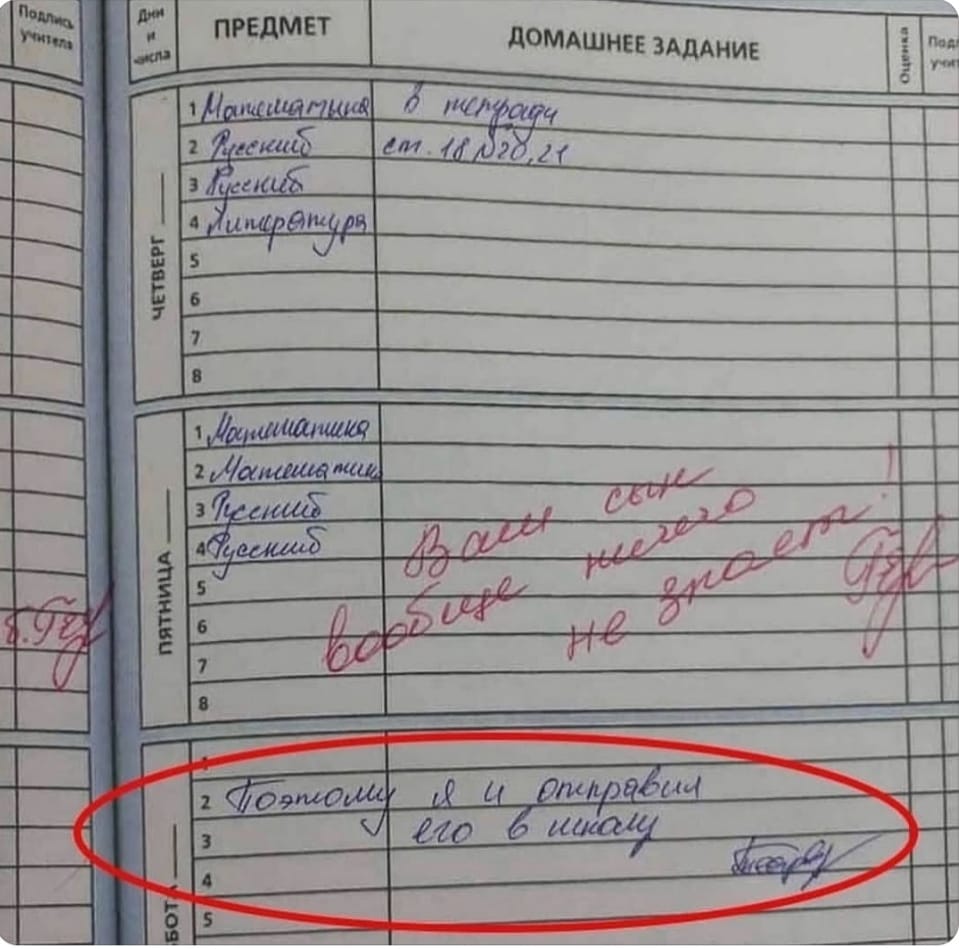 Подпись
учителя
Дни
и
числа
ПРЕДМЕТ
ДОМАШНЕЕ ЗАДАНИЕ
Оценка
Под
учит
ЧЕТВЕРГ
1 Математика в тетради
2 Русский ст. 18 №20, 21
3 Русский
4 Литература
5
6
7
8
ПЯТНИЦА
1 Математика
2 Математика
3 Русский
4 Русский
5
6
7
8
Ваш сын
вообще ничего
не знает!
БОТА
1
2 Поэтому я и отправил
3 его в школу
4
5